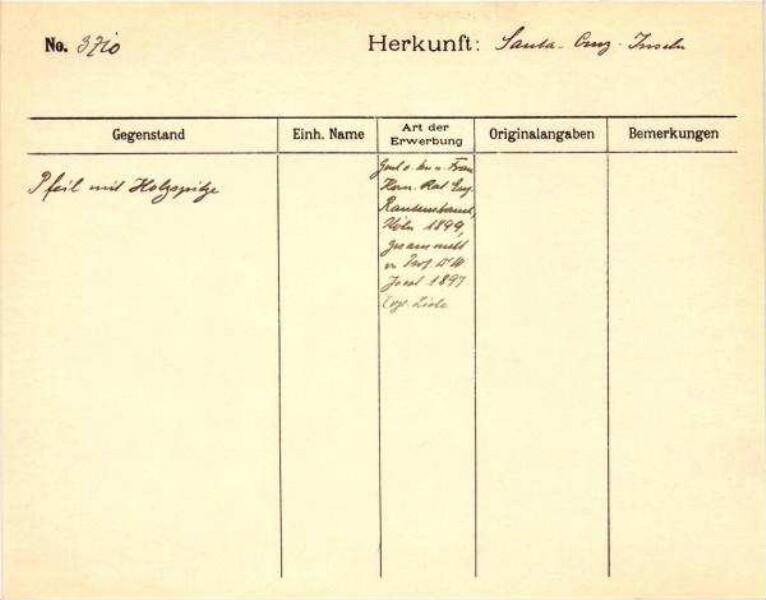 No. 3710
Herkunft: Santa-Cruz-Inseln
Gegenstand
Einh. Name
Art der
Erwerbung
Originalangaben
Bemerkungen
Pfeil mit Holzspitze
Frau
Kom. Rat Eug.
Rautenstrauch,
Köln 1899,
gesammelt
v. Prof. Dr W
Joest 1897